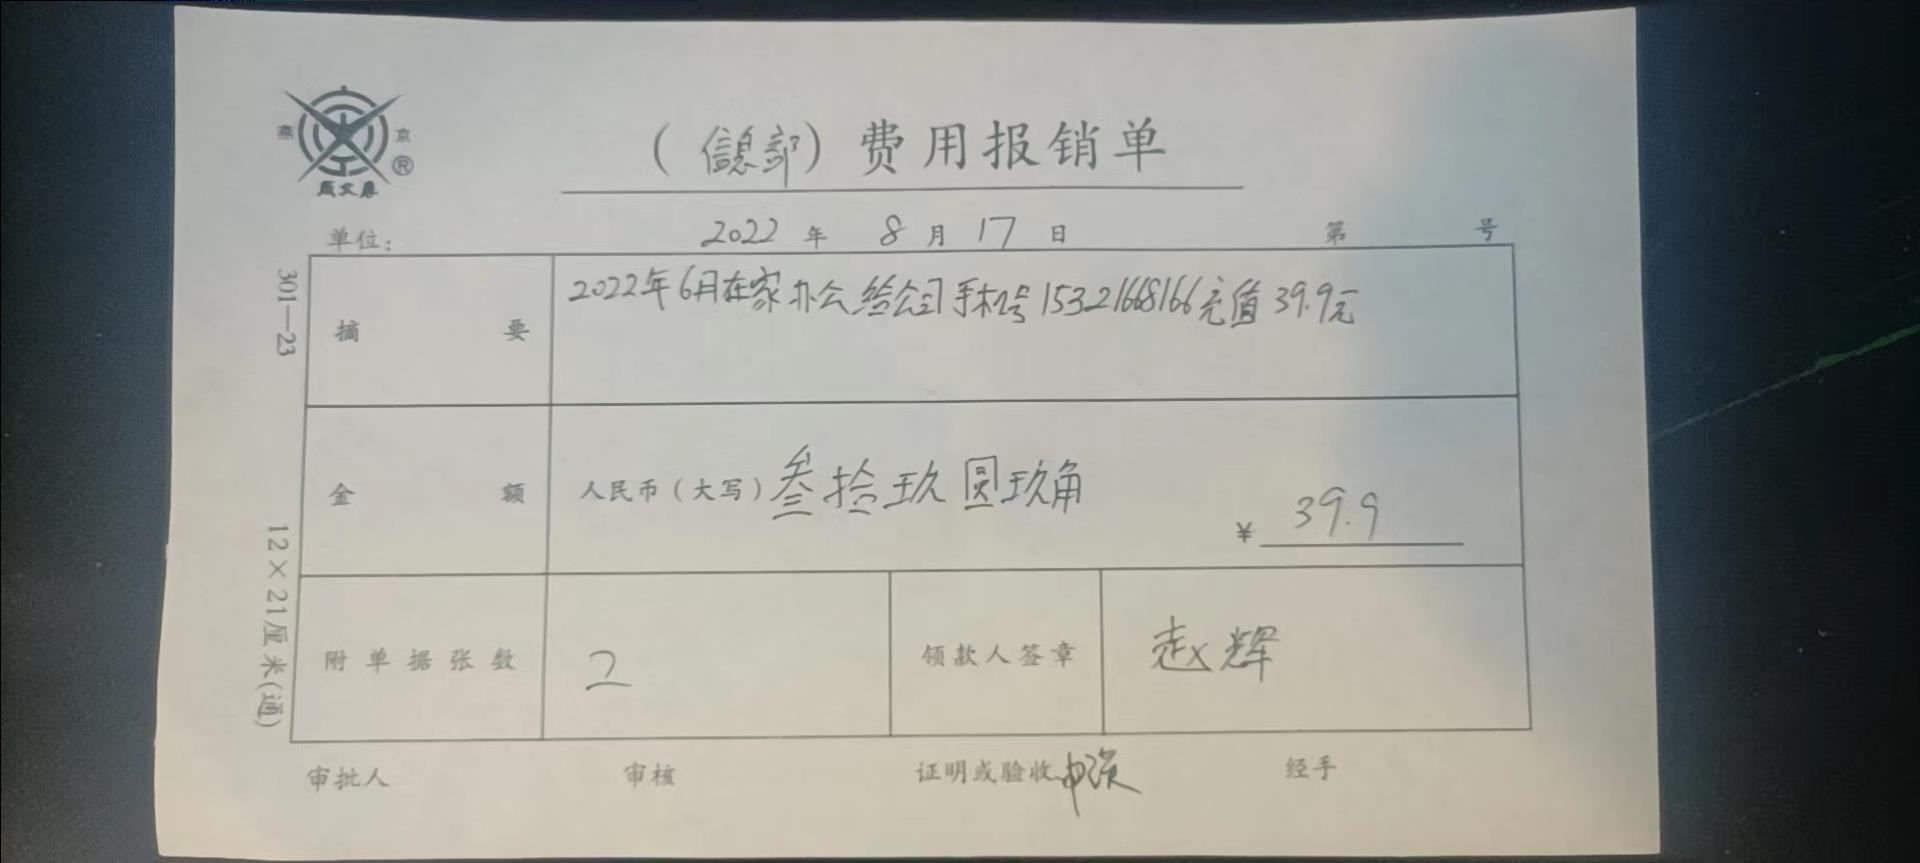 燕 京
®
(信息部)费用报销单
单位: 2022 年 8 月 17 日 第 号
301—23
12×21厘米(通)
摘 要 2022年6月在家办公给公司手机号15321668166充值39.9元
金 额 人民币(大写)叁拾玖圆玖角 ¥ 39.9
附单据张数 2 领款人签章 赵辉
审批人 审核 证明或验收 经手